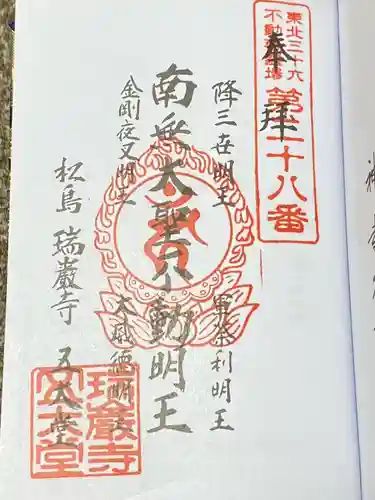 東北三十六
不動尊霊場
第二十八番
奉拝
降三世明王
軍荼利明王
南無大聖不動明王
金剛夜叉明王
大威徳明王
松島 瑞巌寺 五大堂
瑞巌寺
五大堂